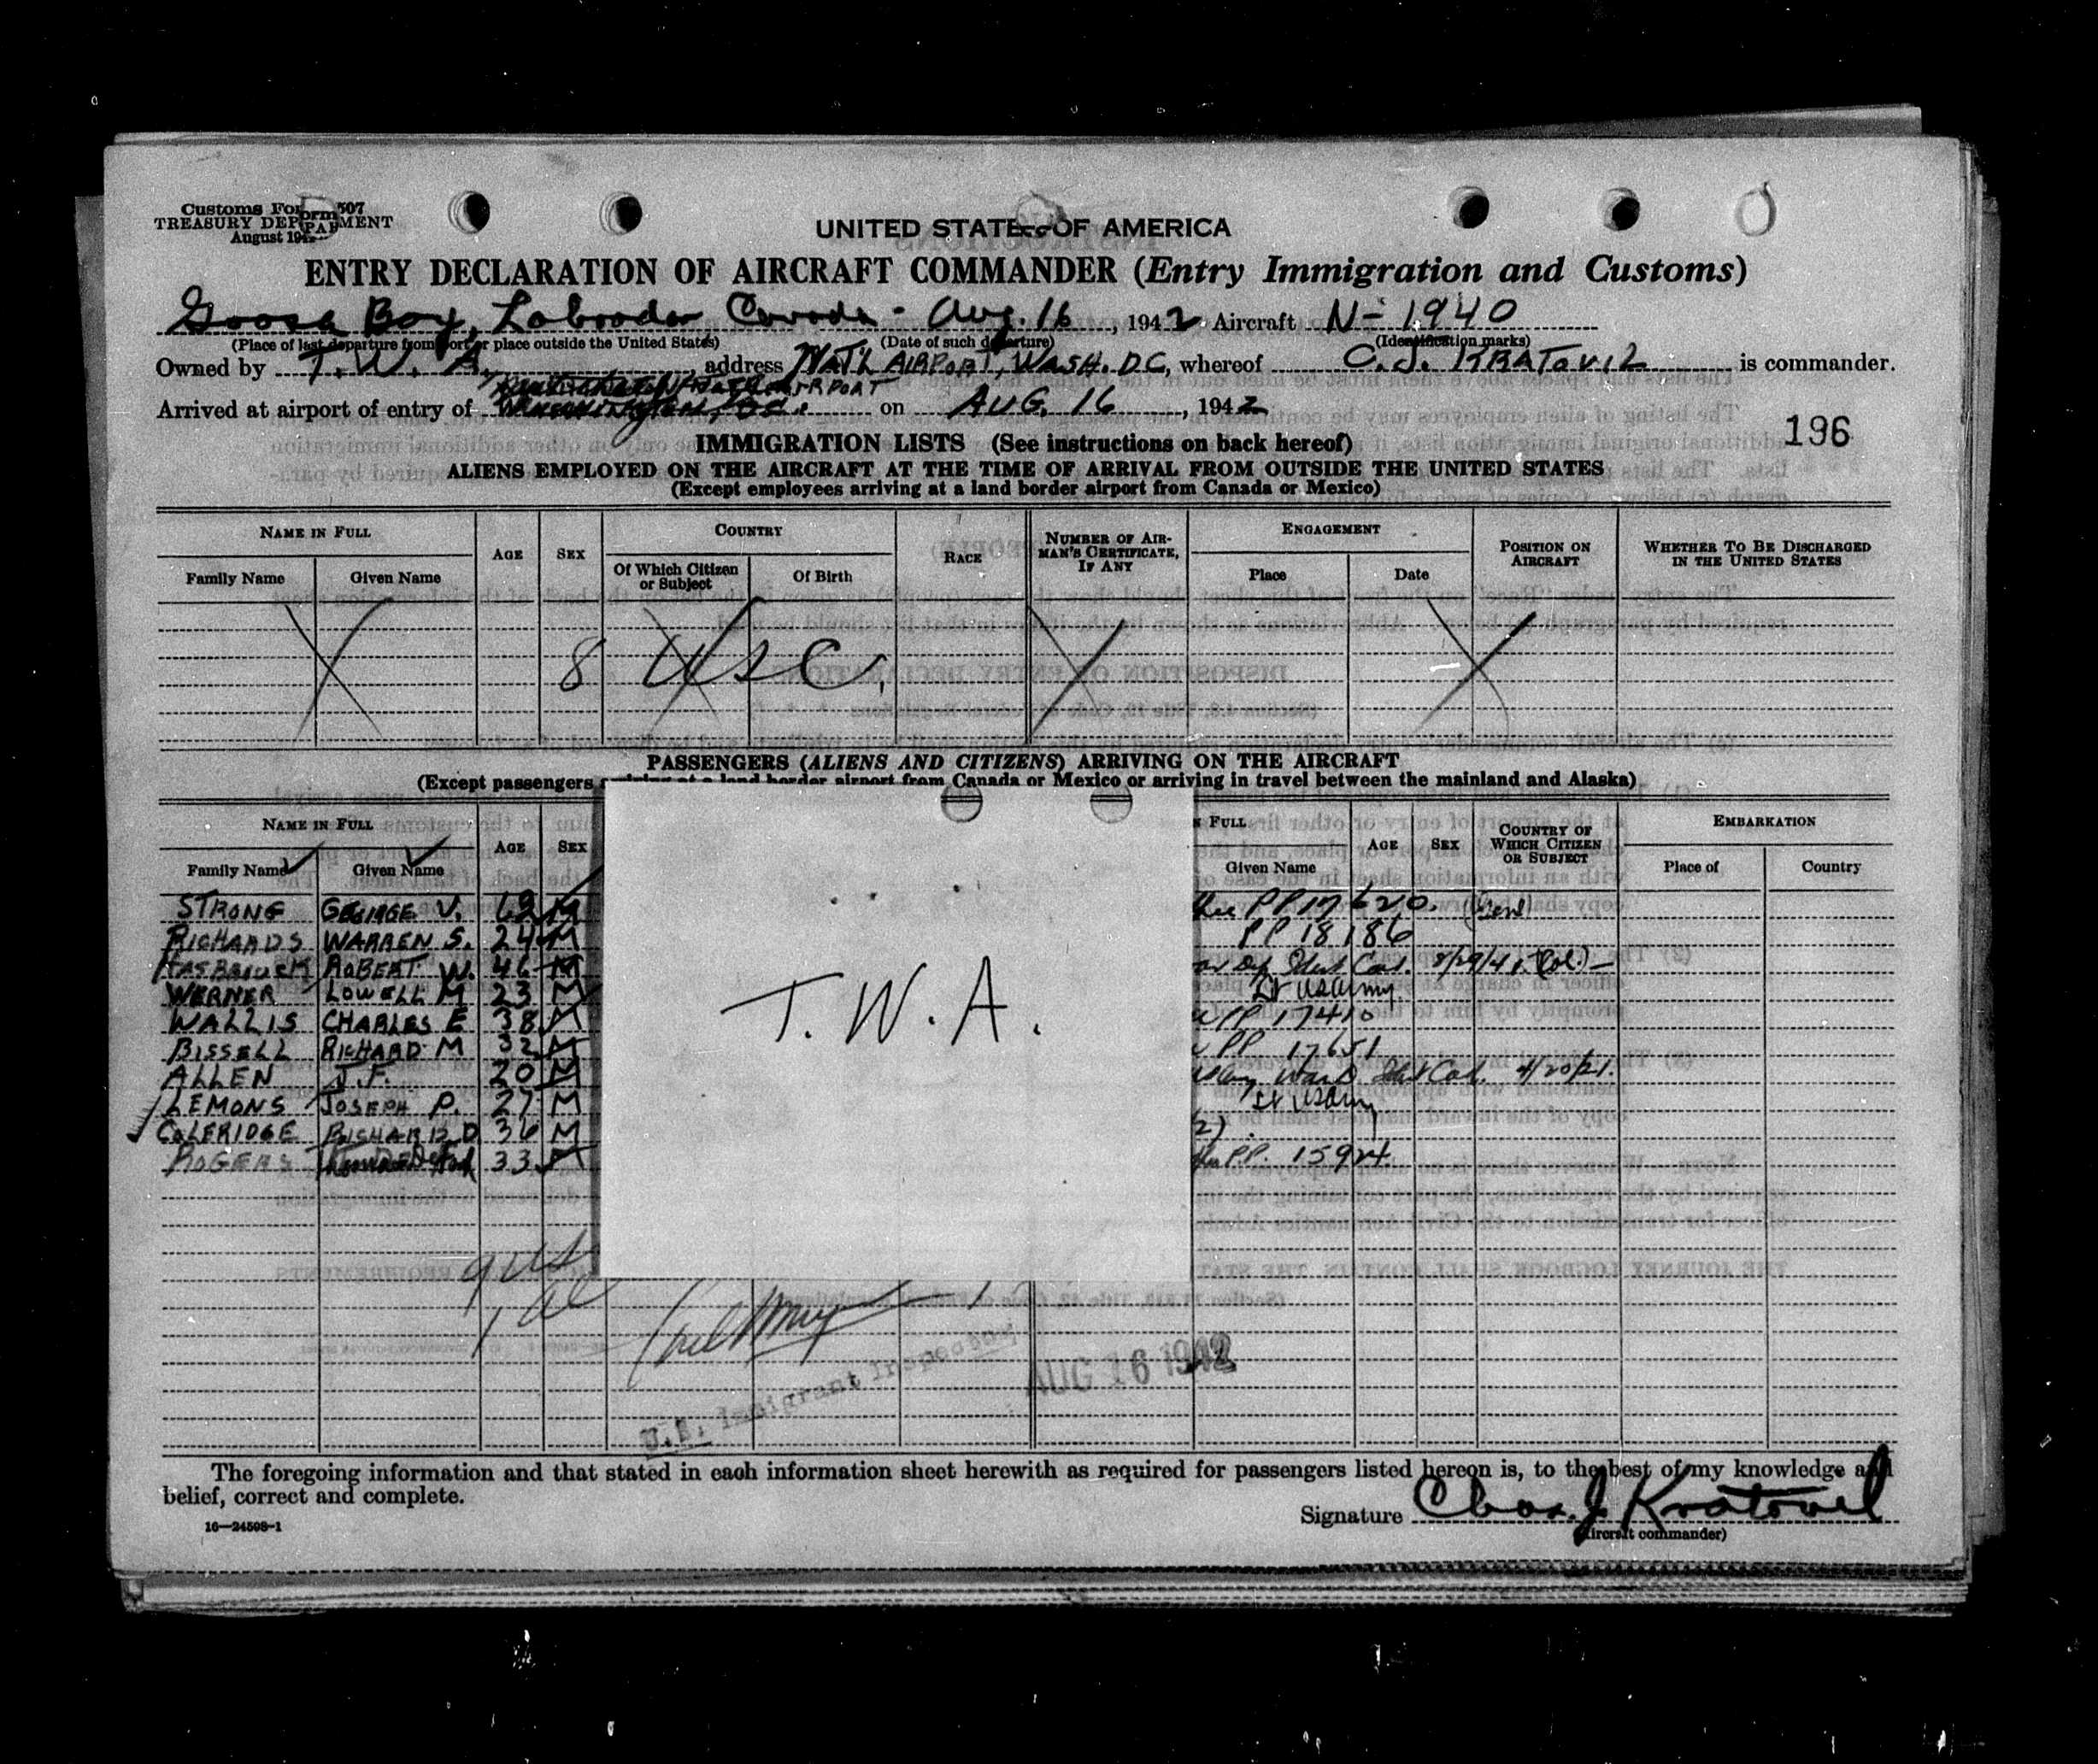 Customs Form 507
TREASURY DEPARTMENT
August 19
UNITED STATES OF AMERICA
ENTRY DECLARATION OF AIRCRAFT COMMANDER (Entry Immigration and Customs)
Goose Bay, Labrador Canada - Aug. 16, 1942 Aircraft N-1940
(Place of last departure from port or place outside the United States) (Date of such departure) (Identification marks)
Owned by T. W. A., address NAT'L AIRPORT, WASH. DC, whereof C. J. KRATOVIL is commander.
AIRPORT
Arrived at airport of entry of on AUG. 16, 1942
196
IMMIGRATION LISTS (See instructions on back hereof)
ALIENS EMPLOYED ON THE AIRCRAFT AT THE TIME OF ARRIVAL FROM OUTSIDE THE UNITED STATES
(Except employees arriving at a land border airport from Canada or Mexico)
NAME IN FULL AGE SEX COUNTRY RACE NUMBER OF AIRMAN'S CERTIFICATE, IF ANY ENGAGEMENT POSITION ON AIRCRAFT WHETHER TO BE DISCHARGED IN THE UNITED STATES
Family Name Given Name Of Which Citizen or Subject Of Birth Place Date
8 USC.
PASSENGERS (ALIENS AND CITIZENS) ARRIVING ON THE AIRCRAFT
(Except passengers arriving at a land border airport from Canada or Mexico or arriving in travel between the mainland and Alaska)
NAME IN FULL AGE SEX FULL AGE SEX COUNTRY OF WHICH CITIZEN OR SUBJECT EMBARKATION
Family Name Given Name Given Name Place of Country
STRONG GEORGE V. 62 M PP 17620. (Genl)
RICHARDS WARREN S. 24 M PP 18186
HASBROUCK ROBERT W. 46 M Dep Ident Cad. 8/29/41 (Col.)
WERNER LOWELL M 23 M Lt US Army
WALLIS CHARLES E 38 M PP 17410
BISSELL RICHARD M 32 M PP 17651
ALLEN J. F. 20 M Ident Cad. 4/20/21.
LEMONS JOSEPH P. 27 M Lt US Army
COLERIDGE RICHARD D 36 M 2).
ROGERS 33 M PP. 15924.
T. W. A.
9 US
1
U.S. Immigrant Inspector
AUG 16 1942
The foregoing information and that stated in each information sheet herewith as required for passengers listed hereon is, to the best of my knowledge and
belief, correct and complete.
Signature Chas. J Kratovil
(Aircraft commander)
16—24508-1